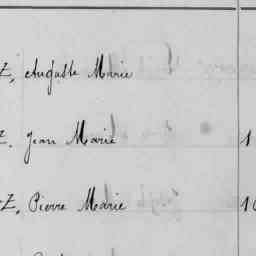 Z, Auguste Marie
Z. Jean Marie 1
Z, Pierre Marie 10